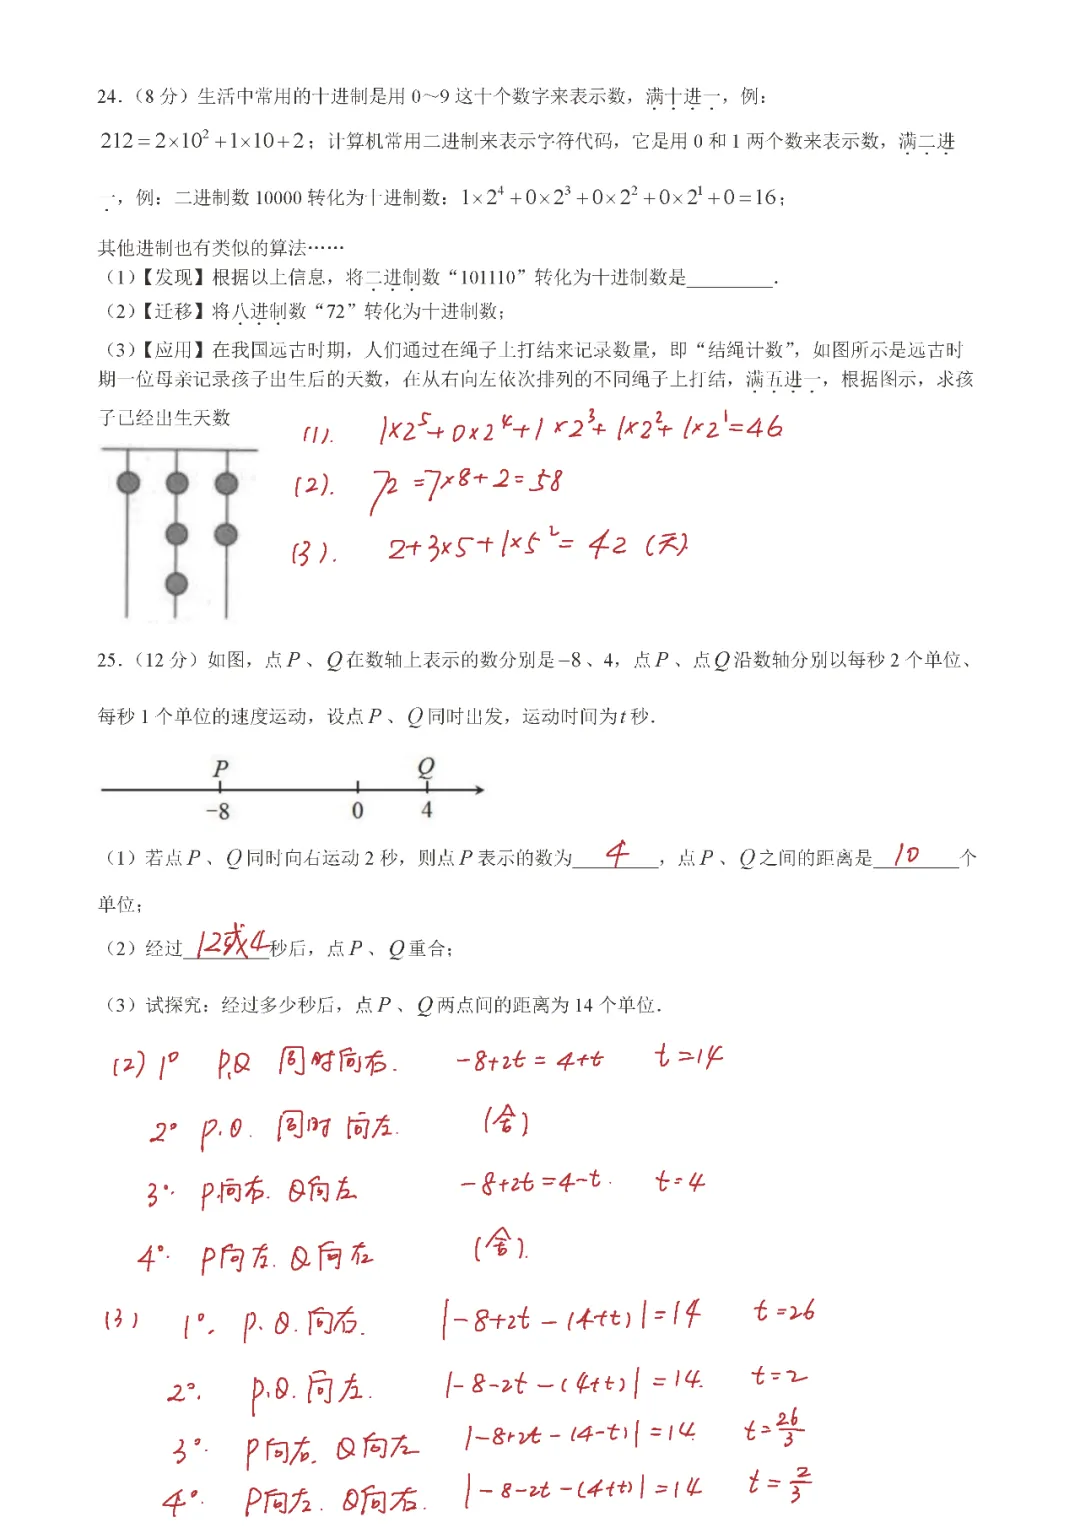 24．（8 分）生活中常用的十进制是用 0～9 这十个数字来表示数，满十进一，例：
212＝2×10²＋1×10＋2；计算机常用二进制来表示字符代码，它是用 0 和 1 两个数来表示数，满二进
一，例：二进制数 10000 转化为十进制数：1×2⁴＋0×2³＋0×2²＋0×2¹＋0＝16；
其他进制也有类似的算法……
（1）【发现】根据以上信息，将二进制数“101110”转化为十进制数是_________．
（2）【迁移】将八进制数“72”转化为十进制数；
（3）【应用】在我国远古时期，人们通过在绳子上打结来记录数量，即“结绳计数”，如图所示是远古时
期一位母亲记录孩子出生后的天数，在从右向左依次排列的不同绳子上打结，满五进一，根据图示，求孩
子已经出生天数
(1). 1×2⁵+0×2⁴+1×2³+1×2²+1×2¹=46
(2). 72=7×8+2=58
(3). 2+3×5+1×5²=42（天）
25．（12 分）如图，点 P 、 Q 在数轴上表示的数分别是 −8、4，点 P 、点 Q 沿数轴分别以每秒 2 个单位、
每秒 1 个单位的速度运动，设点 P 、 Q 同时出发，运动时间为 t 秒．
P Q
-8 0 4
（1）若点 P 、 Q 同时向右运动 2 秒，则点 P 表示的数为 4 ，点 P 、 Q 之间的距离是 10 个
单位；
（2）经过 12或4 秒后，点 P 、 Q 重合；
（3）试探究：经过多少秒后，点 P 、 Q 两点间的距离为 14 个单位．
(2) 1° P,Q 同时向右. -8+2t=4+t t=14
2° P.Q. 同时向左. （舍）
3°. P向右. Q向左 -8+2t=4-t. t=4
4°. P向左. Q向右 （舍）.
(3) 1°. P.Q.向右. |-8+2t-(4+t)|=14 t=26
2°. P.Q.向左. |-8-2t-(4+t)|=14. t=2
3°. P向右. Q向左 |-8+2t-(4-t)|=14 t=26/3
4°. P向左. Q向右. |-8-2t-(4+t)|=14 t=2/3